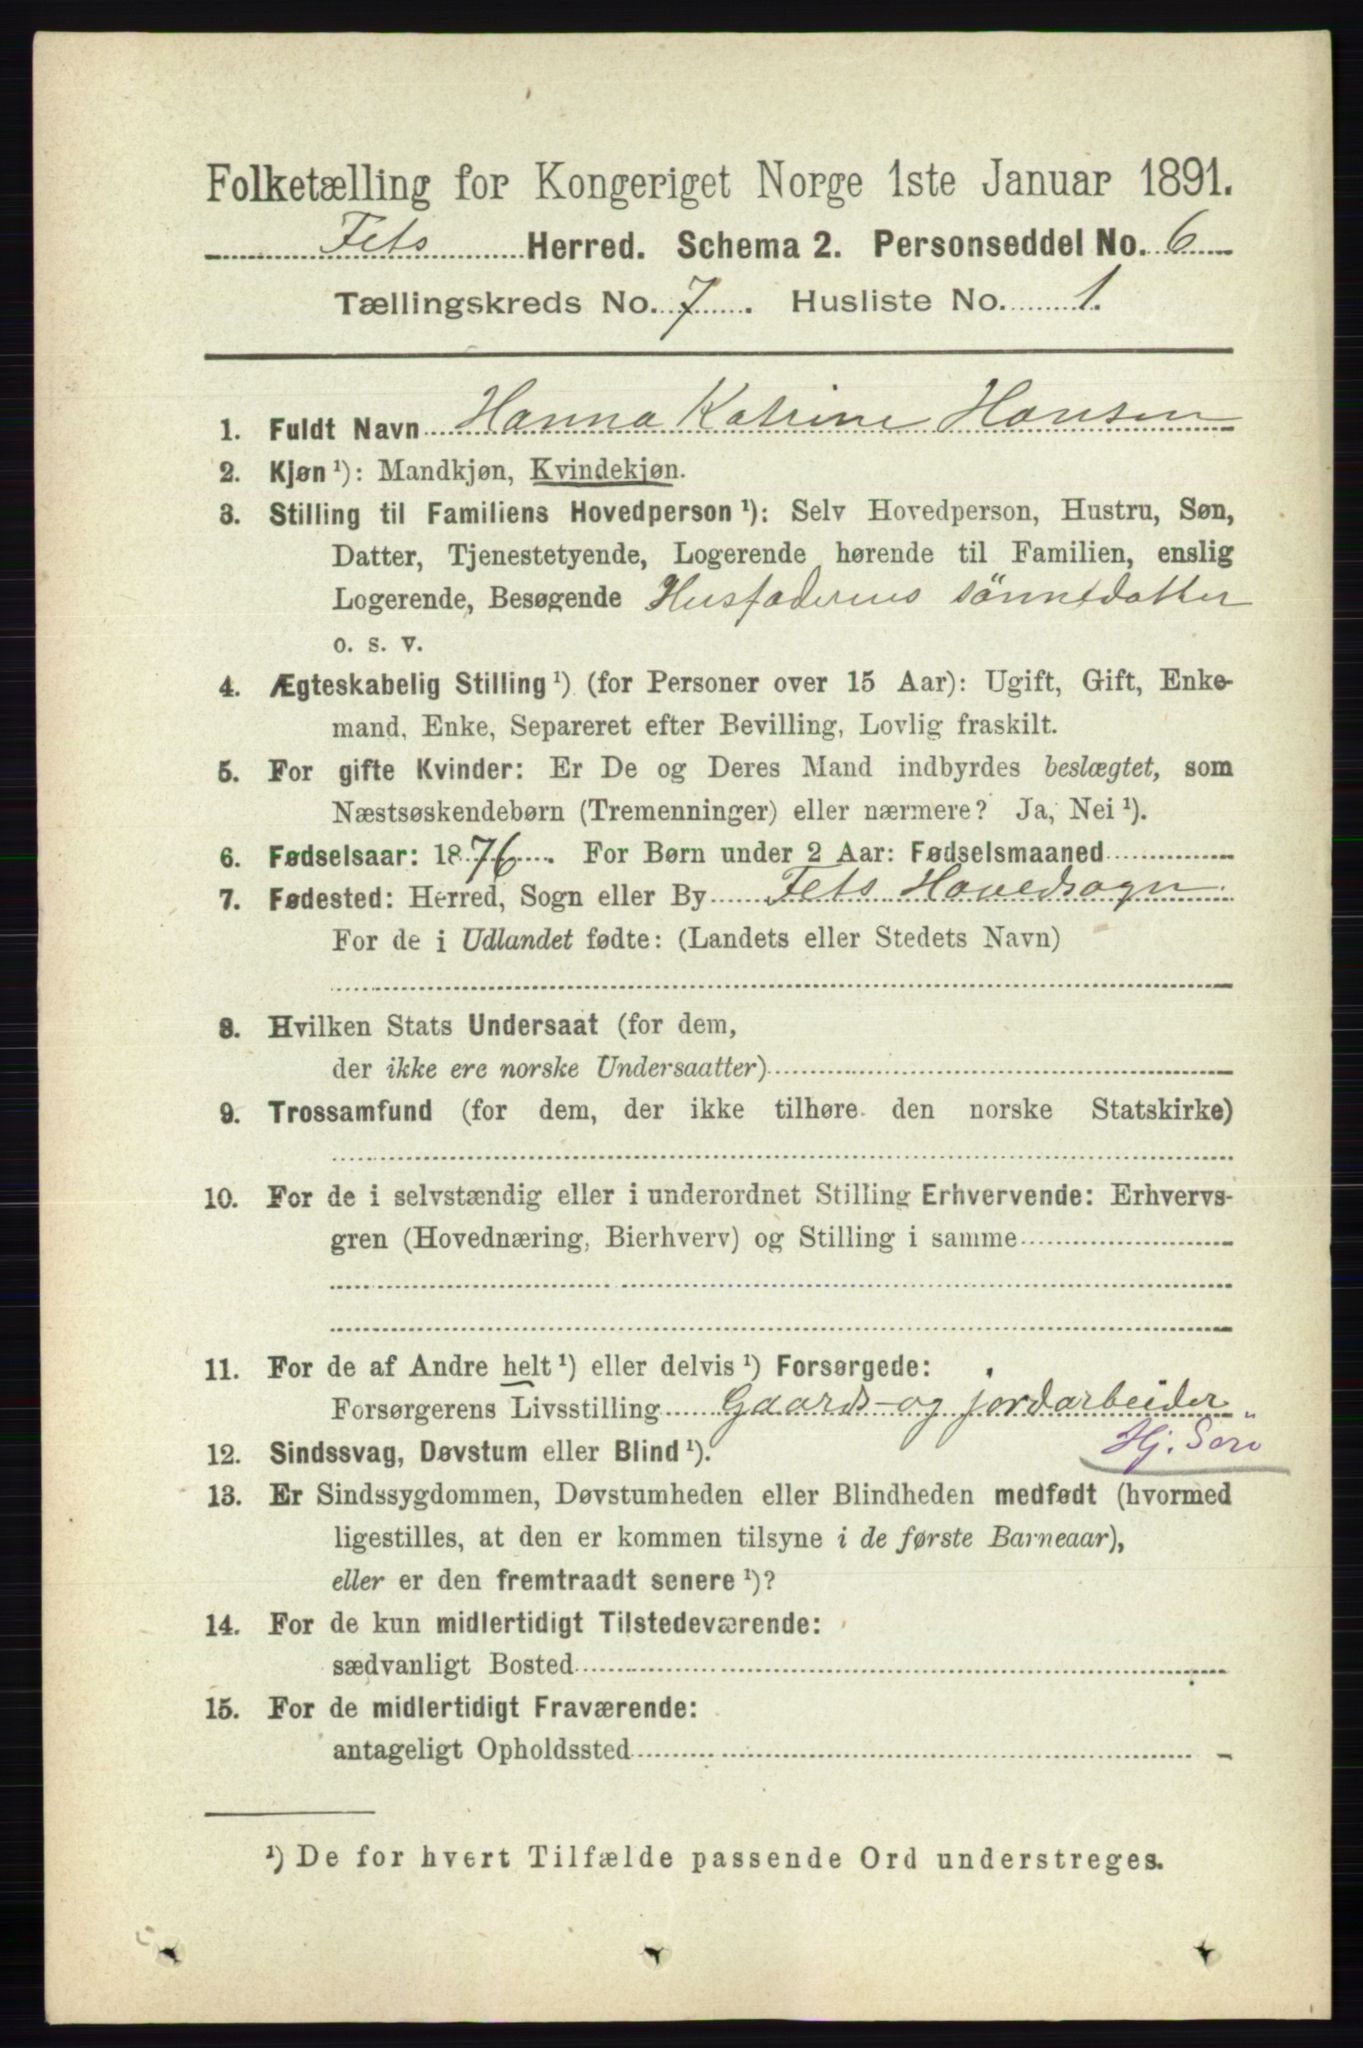 Folketælling for Kongeriget Norge 1ste Januar 1891.
Fets Herred. Schema 2. Personseddel No. 6
Tællingskreds No. 7. Husliste No. 1.
1. Fuldt Navn Hanna Katrine Hansen
2. Kjøn ¹): Mandkjøn, Kvindekjøn.
3. Stilling til Familiens Hovedperson ¹): Selv Hovedperson, Hustru, Søn,
Datter, Tjenestetyende, Logerende hørende til Familien, enslig
Logerende, Besøgende Husfaderens sönnedatter
o. s. v.
4. Ægteskabelig Stilling ¹) (for Personer over 15 Aar): Ugift, Gift, Enke-
mand, Enke, Separeret efter Bevilling, Lovlig fraskilt.
5. For gifte Kvinder: Er De og Deres Mand indbyrdes beslægtet, som
Næstsøskendebørn (Tremenninger) eller nærmere? Ja, Nei ¹).
6. Fødselsaar: 1876. For Børn under 2 Aar: Fødselsmaaned
7. Fødested: Herred, Sogn eller By Fets Hovedsogn.
For de i Udlandet fødte: (Landets eller Stedets Navn)
8. Hvilken Stats Undersaat (for dem,
der ikke ere norske Undersaatter)
9. Trossamfund (for dem, der ikke tilhøre den norske Statskirke)
10. For de i selvstændig eller i underordnet Stilling Erhvervende: Erhvervs-
gren (Hovednæring, Bierhverv) og Stilling i samme
11. For de af Andre helt ¹) eller delvis ¹) Forsørgede:
Forsørgerens Livsstilling Gaards- og jordarbeider
12. Sindssvag, Døvstum eller Blind ¹). Hj.
13. Er Sindssygdommen, Døvstumheden eller Blindheden medfødt (hvormed
ligestilles, at den er kommen tilsyne i de første Barneaar),
eller er den fremtraadt senere ¹)?
14. For de kun midlertidigt Tilstedeværende:
sædvanligt Bosted
15. For de midlertidigt Fraværende:
antageligt Opholdssted
¹) De for hvert Tilfælde passende Ord understreges.